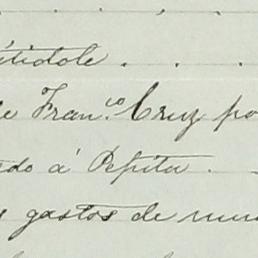 étidole . . .
de Fran.co Cruz po
do á Pepita . .
gastos de